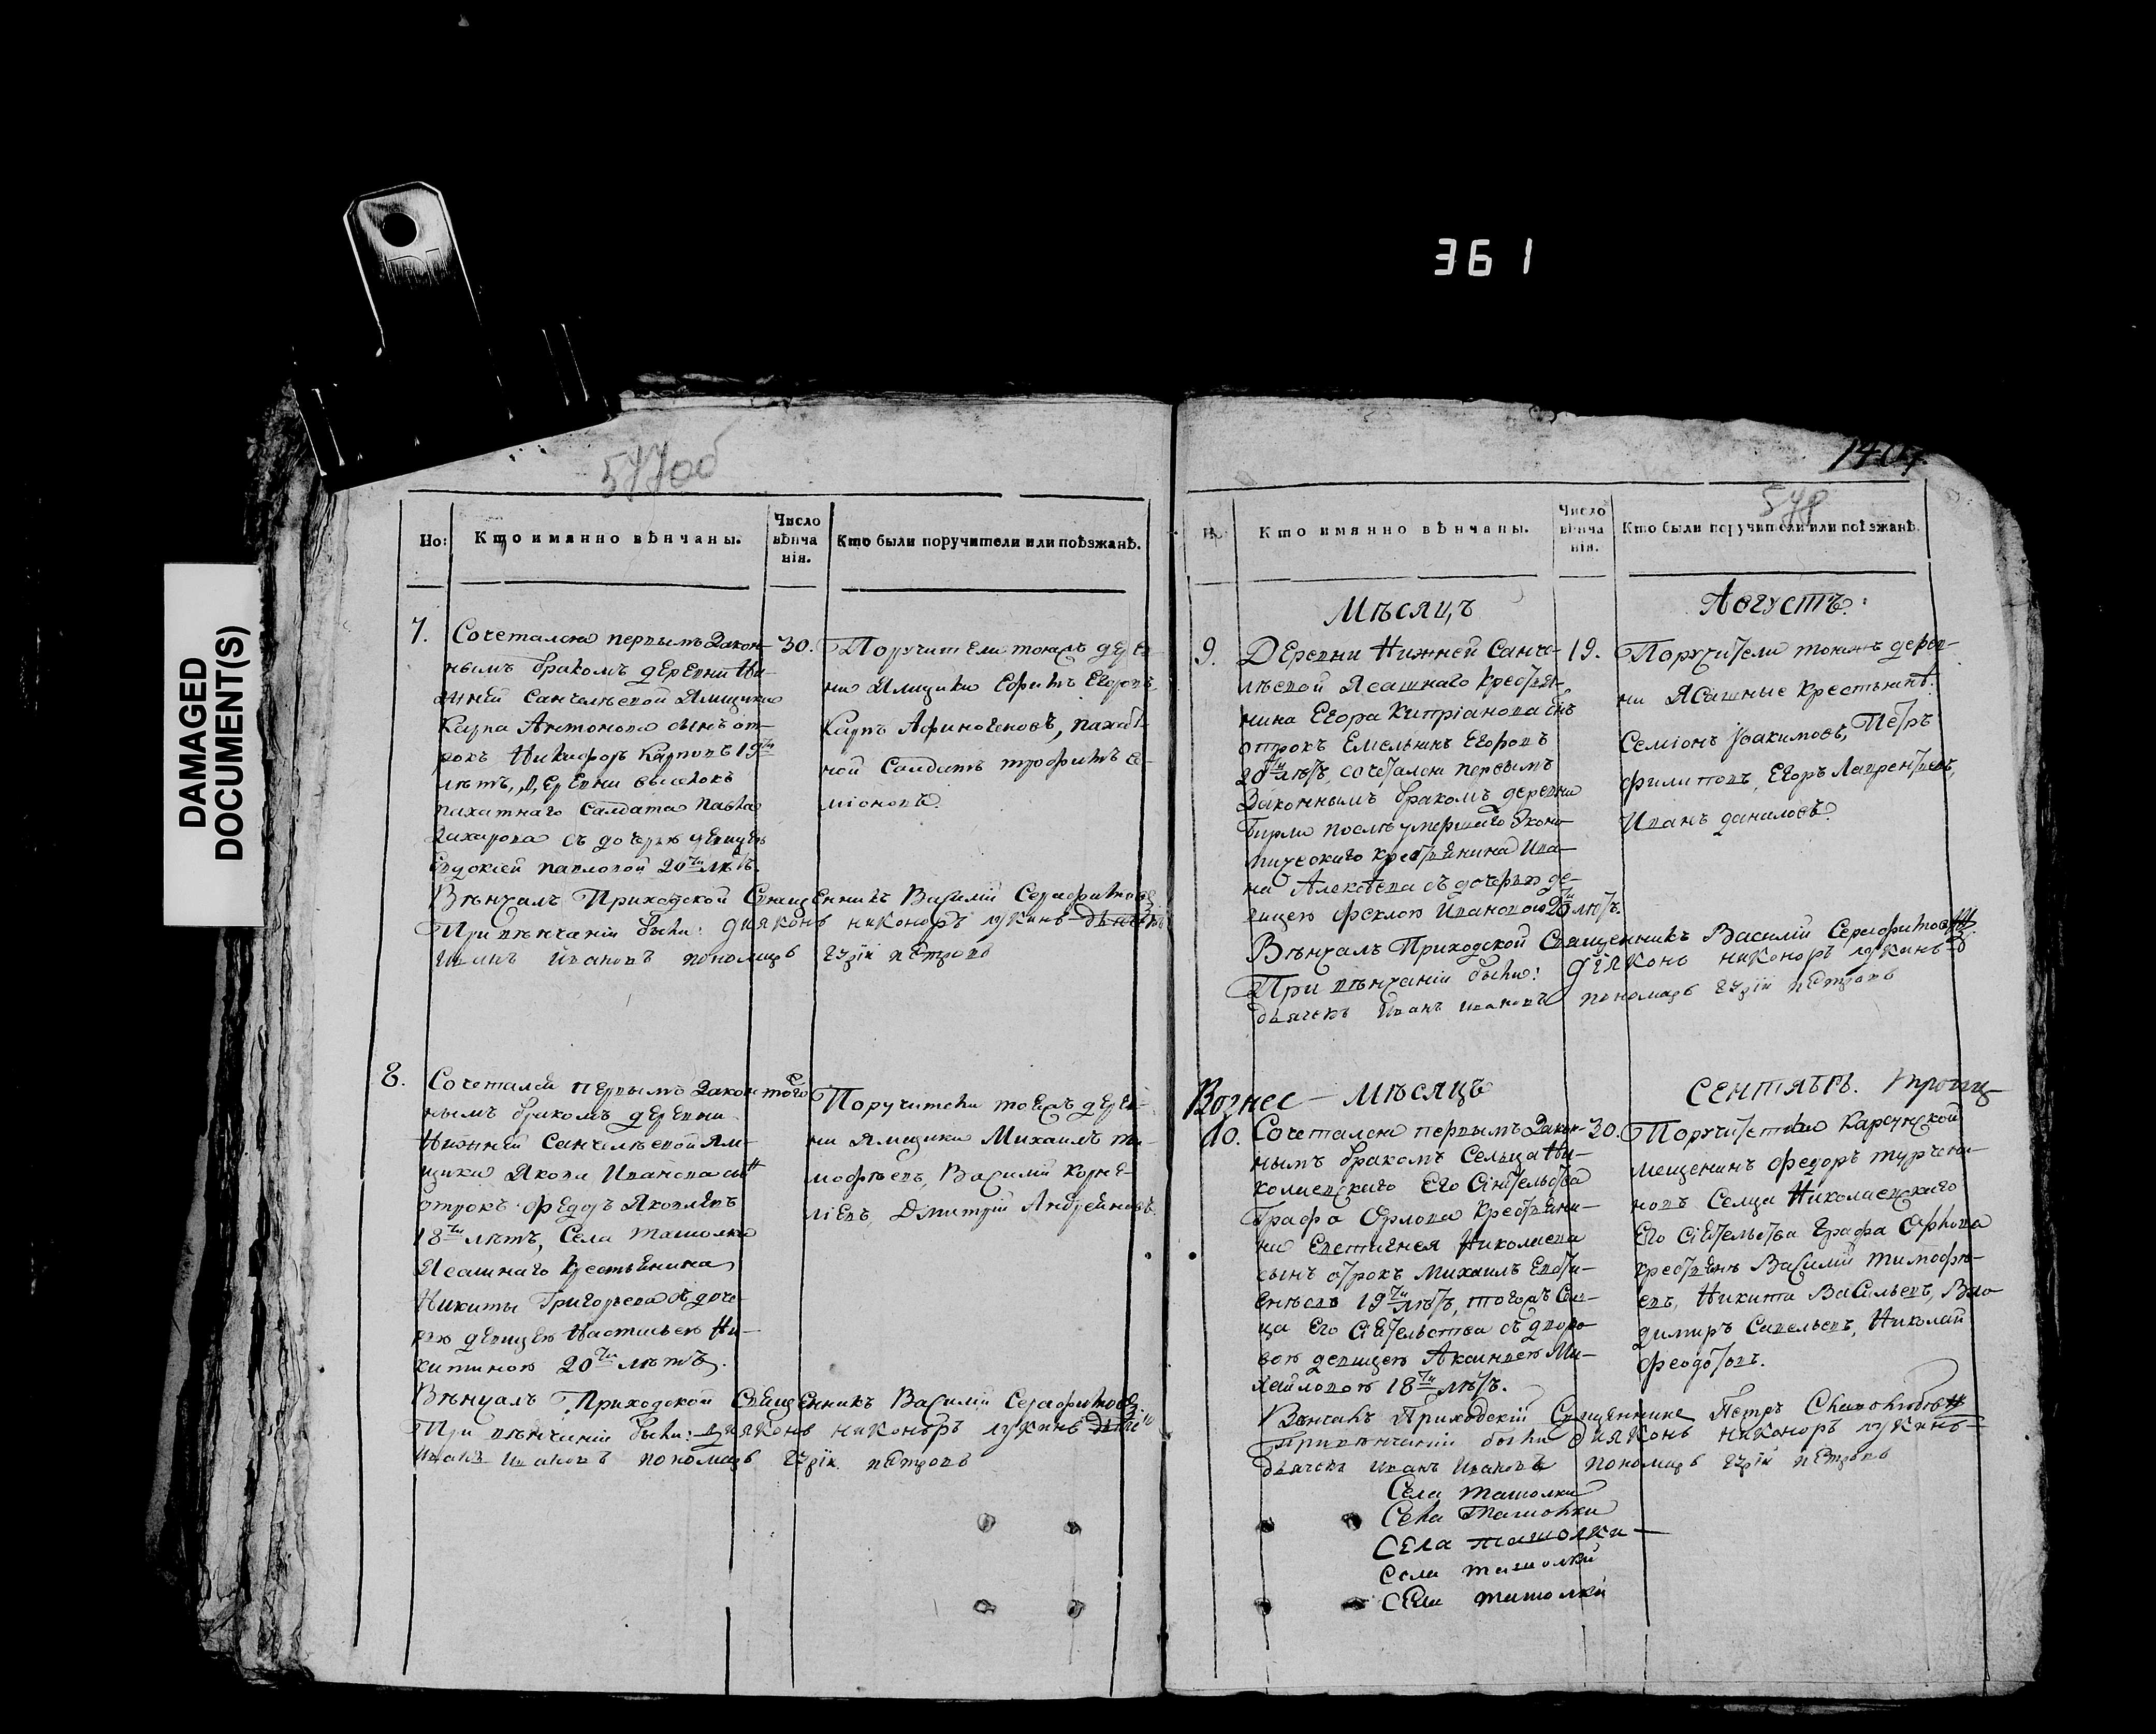 361
DAMAGED
DOCUMENT(S)
577об
Но:
Кто имянно вѣнчаны.
Число
вѣнча
нія.
Кто были поручители или поѣзжанѣ.
7.
Сочетался первымъ Закон-
нымъ бракомъ деревни Ни-
жней Санчелѣевой Ямщика
Карпа Антонова сынъ от-
рокъ Никифоръ Карповъ 19ти
лѣтъ, деревни выселокъ
пахатнаго Салдата Павла
Захарова съ дочерью девицею
Евдокіей Павловой 20ти лѣтъ.
30.
Поручители тоежъ дерев-
ни Ямщики Ефимъ Егоровъ,
Карпъ Афиногеновъ, пахат-
ной Салдатъ трофимъ Се-
міоновъ.
Вѣнчалъ Приходской Священникъ Василій Серафимовъ
При вѣнчаніи были: дияконъ никоноръ лукинъ дьячекъ
Иванъ Ивановъ пономарь гурій петровъ
8.
Сочетался первымъ Закон-
нымъ бракомъ деревни
Нижней Санчелѣевой Ям-
щика Якова Иванова сынъ
отрокъ Федоръ Яковлевъ
18ти лѣтъ, Села Ташолки
Ясашнаго Крестьянина
Никиты Григорьева съ доче-
рью девицею Настасьею Ни-
китиною 20ти лѣтъ.
того
Поручители тоежъ дерев-
ни Ямщики Михаилъ ти-
мофѣевъ, Василій Корне-
ліевъ, Димитрій Андреяновъ.
Вѣнчалъ Приходской Священникъ Василій Серафимовъ
При вѣнчаніи были: дияконъ никоноръ лукинъ
Иванъ Ивановъ пономарь гурій петровъ
Кто имянно вѣнчаны.
Число
вѣнча
нія.
Кто были поручители или поѣзжанѣ.
Мѣсяцъ
Августъ:
9.
Деревни Нижней Санче-
лѣевой Ясашнаго Крестья-
нина Егора Кипріанова снъ
отрокъ Емельянъ Егоровъ
20ти лѣтъ, сочетался первымъ
Законнымъ бракомъ деревни
Бирли послѣ умершаго Эконо-
мическаго крестьянина Ива-
на Алексѣева съ дочерью де-
вицею Феклою Ивановою 20ти лѣтъ.
19.
Поручители тоежъ дерев-
ни Ясашные Крестьянѣ:
Семіонъ Іоакимовъ, Петръ
филиповъ, Егоръ Лаврентьевъ,
Иванъ даниловъ.
Вѣнчалъ Приходской Священникъ Василій Серафимовъ
При вѣнчаніи были: дияконъ никоноръ лукинъ
дьячекъ Иванъ Ивановъ пономарь гурій петровъ
Вознес- Мѣсяцъ
СЕНТЯБРЬ. троиц-
10.
Сочетался первымъ Закон-
нымъ бракомъ Сельца Ни-
колаевскаго Его Сіятельства
Графа Орлова Крестьяни-
на Евстигнея Николаева
сынъ отрокъ Михаилъ Евсти-
гнѣевъ 19ти лѣтъ, тогожъ Сель-
ца Его Сіятельства съ дворо-
вою девицею Аксиньею Ми-
хайловою 18ти лѣтъ.
30.
Поручители Карсунской
мещенинъ Федоръ турчени-
новъ Селца Николаевскаго
Его Сіятельства Графа Орлова
крестьянѣ Василій тимофѣ-
евъ, Никита Васильевъ, Вла-
димиръ Савельевъ, Николай
Феодотовъ.
Вѣнчалъ Приходскій Священникъ Петръ
При вѣнчаніи были дияконъ никоноръ лукинъ
дьячекъ Иванъ Ивановъ пономарь гурій петровъ
Села Ташолки
Села Ташолки
Села ташолки
Села ташолки
Села ташолки